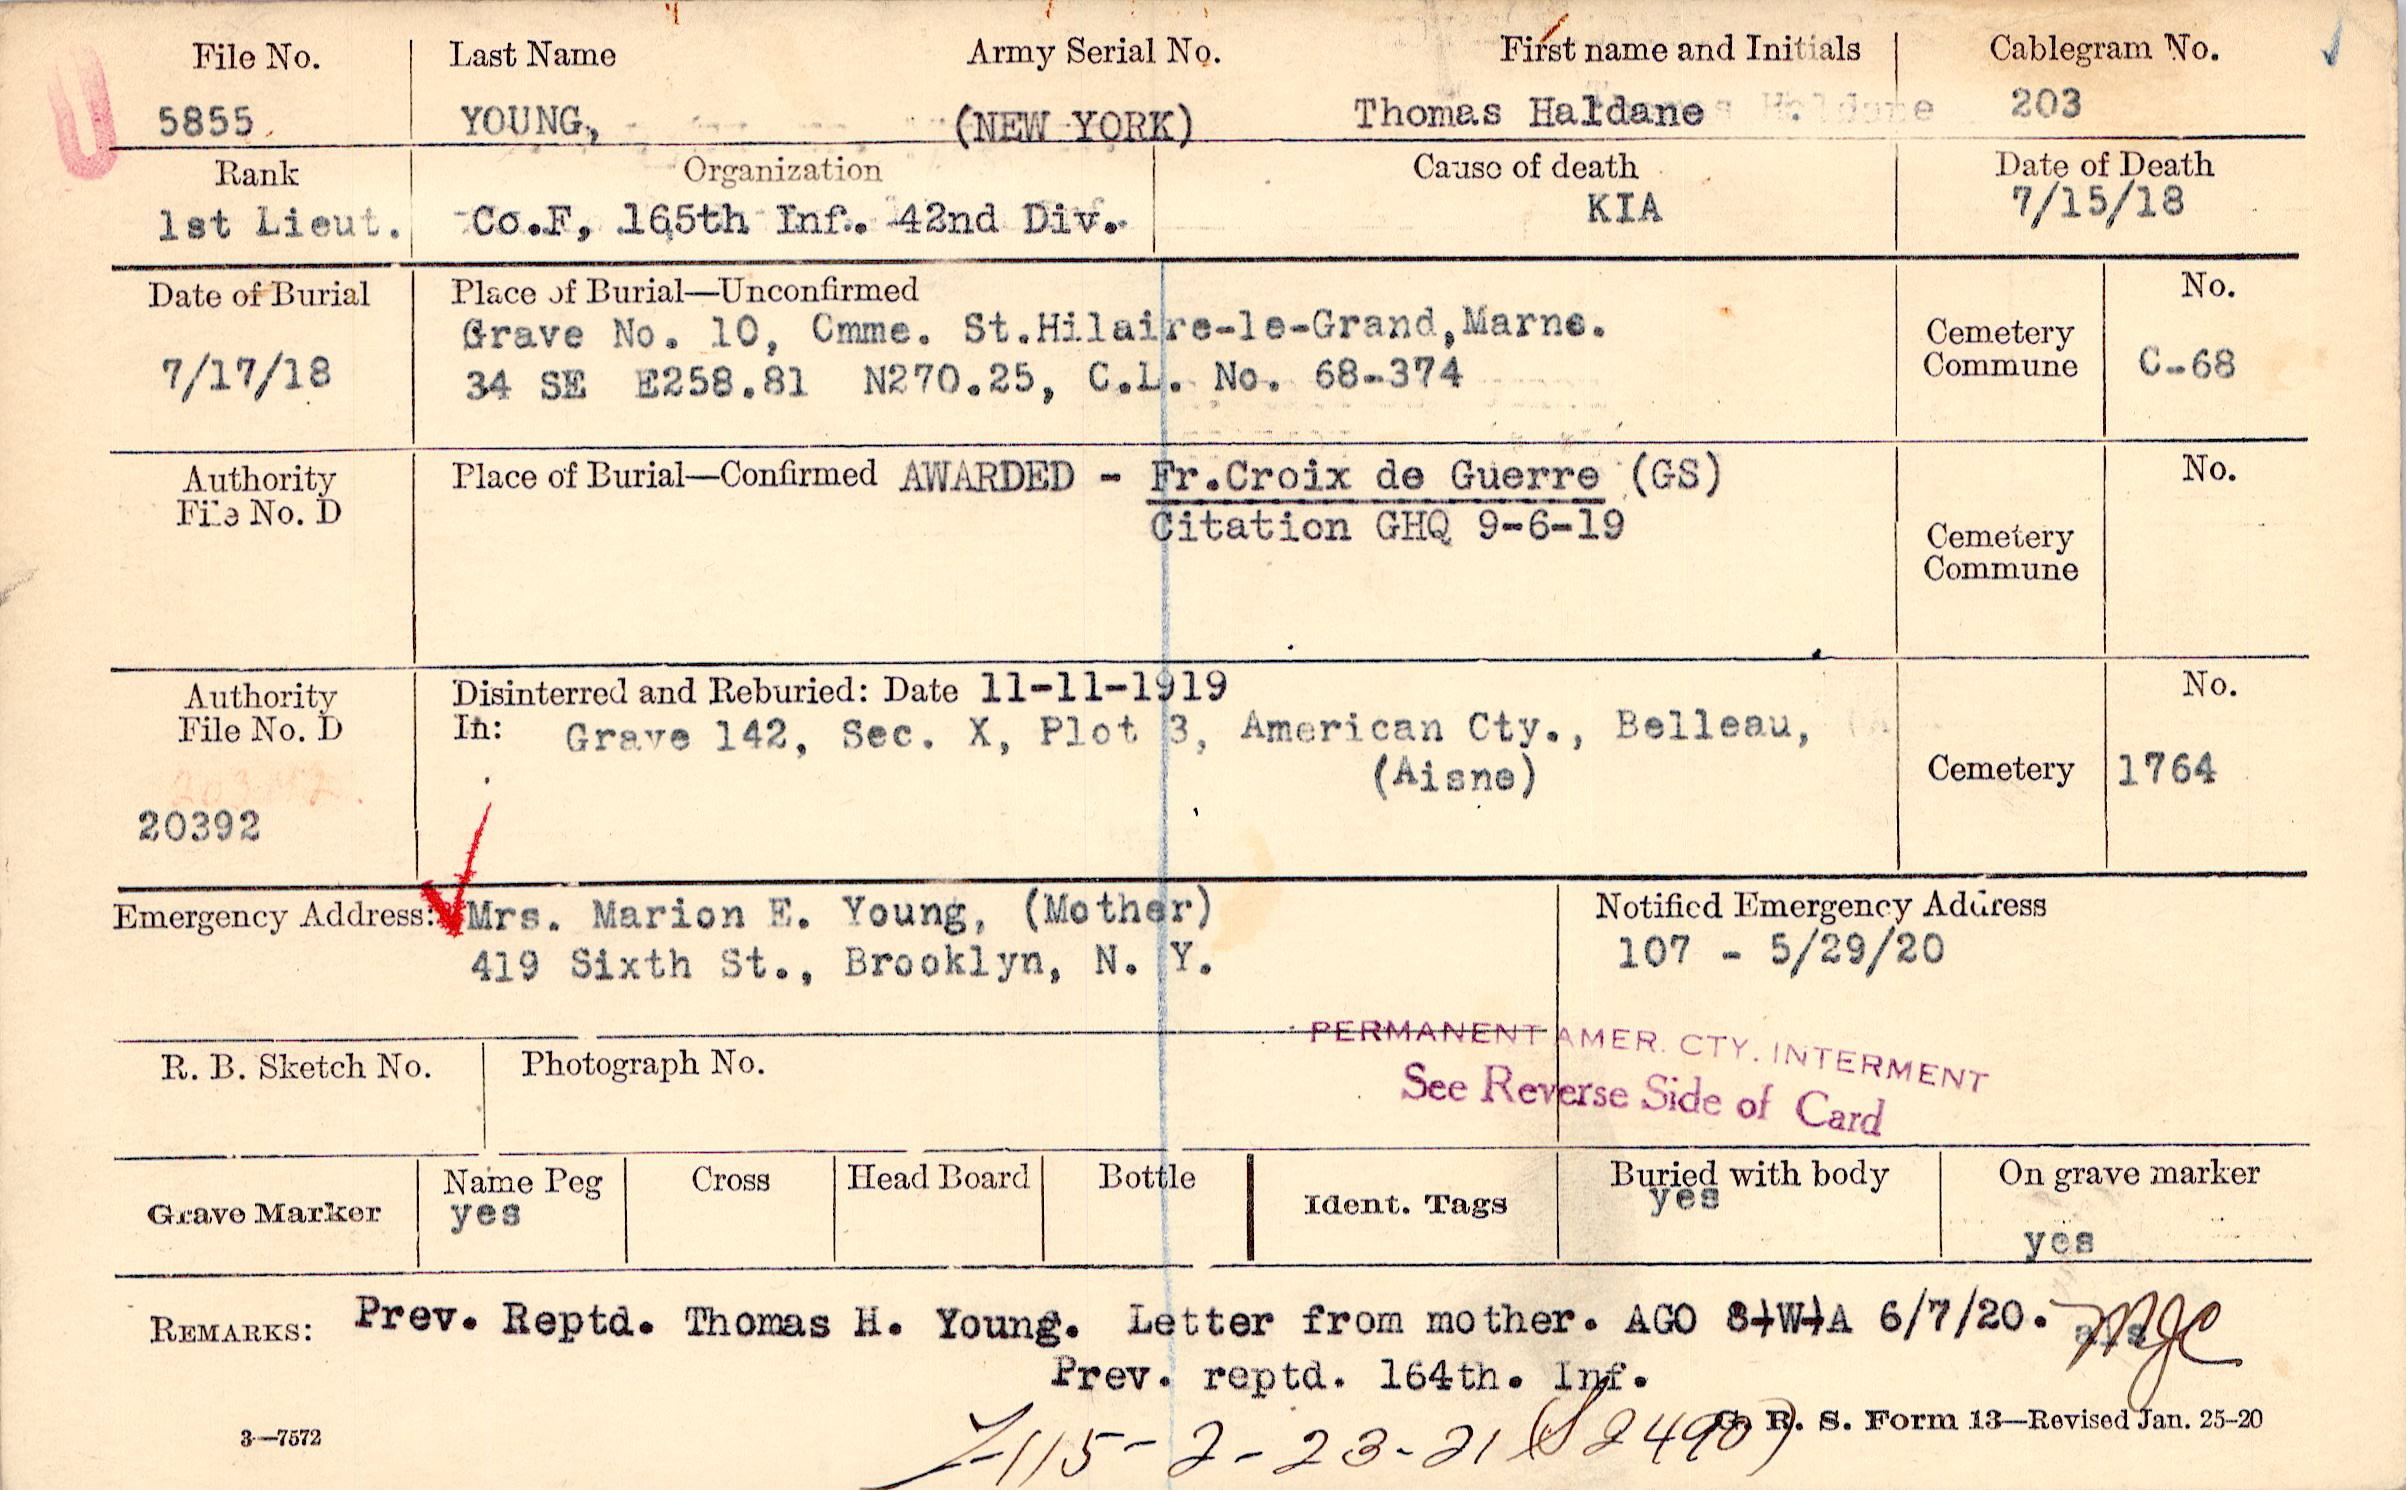 File No. Last Name Army Serial No. First name and Initials Cablegram No.
5855 YOUNG, (NEW YORK) Thomas Haldane 203
Rank Organization Cause of death Date of Death
1st Lieut. Co.F, 165th Inf. 42nd Div. KIA 7/15/18
Date of Burial Place of Burial—Unconfirmed No.
Grave No. 10, Cmme. St.Hilaire-le-Grand,Marne.
7/17/18 34 SE E258.81 N270.25, C.L. No. 68-374 Cemetery Commune C-68
Authority File No. D Place of Burial—Confirmed AWARDED - Fr.Croix de Guerre (GS) No.
Citation GHQ 9-6-19
Cemetery Commune
Authority File No. D Disinterred and Reburied: Date 11-11-1919 No.
In: Grave 142, Sec. X, Plot 3, American Cty., Belleau,
(Aisne) Cemetery 1764
20392
Emergency Address: Mrs. Marion E. Young, (Mother) Notified Emergency Address
419 Sixth St., Brooklyn, N. Y. 107 - 5/29/20
PERMANENT AMER. CTY. INTERMENT
R. B. Sketch No. Photograph No. See Reverse Side of Card
Grave Marker Name Peg Cross Head Board Bottle Ident. Tags Buried with body On grave marker
yes yes yes
REMARKS: Prev. Reptd. Thomas H. Young. Letter from mother. AGO S+W+A 6/7/20. MJC
Prev. reptd. 164th. Inf.
3—7572 G. R. S. Form 13—Revised Jan. 25-20
115-2-23-21 (S 2490)